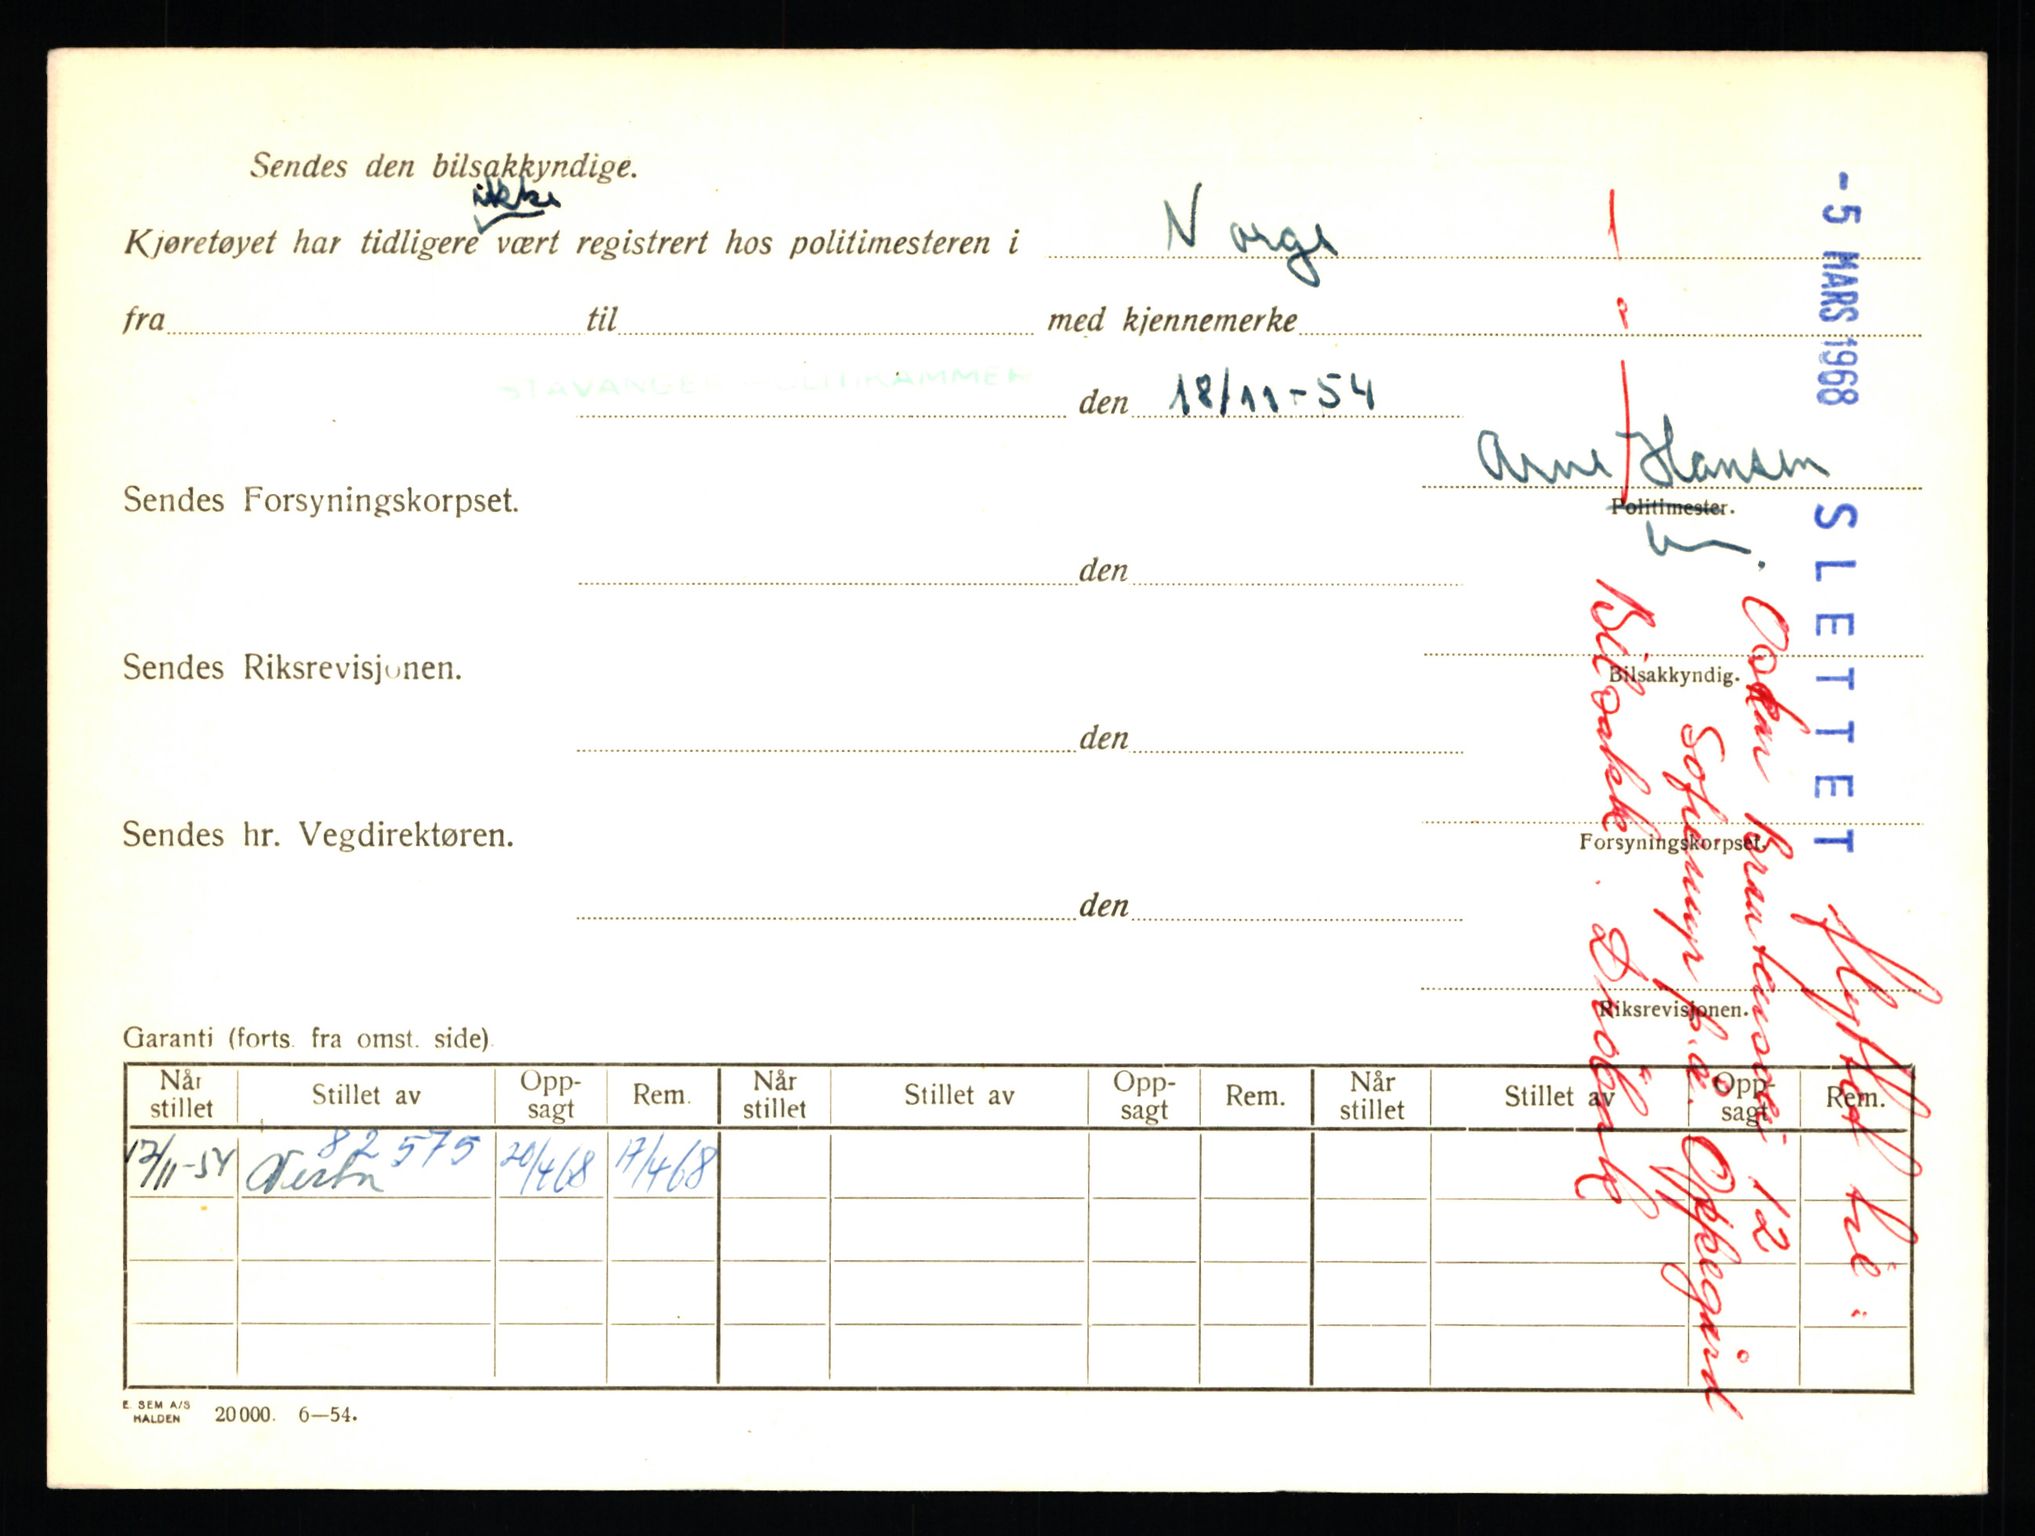 Sendes den bilsakkyndige.
ikke
Kjøretøyet har tidligere vært registrert hos politimesteren i Norge
fra til med kjennemerke
STAVANGER POLITIKAMMER den 18/11-54
Arne Hansen
Sendes Forsyningskorpset. Politimester.
den
Sendes Riksrevisjonen. Bilsakkyndig.
den
Sendes hr. Vegdirektøren. Forsyningskorpset.
den
Riksrevisjonen.
Garanti (forts. fra omst. side).
Når stillet Stillet av Opp-sagt Rem. Når stillet Stillet av Opp-sagt Rem. Når stillet Stillet av Opp-sagt Rem.
82575
17/11-54 Vesta 20/4/68 17/4/68
E. SEM A/S
HALDEN 20000. 6—54.
-5 MARS 1968 SLETTET
flyttet til:
Braatensvei 12
Sofiemyr p.å. Oppegård
Bilsakk. Drøbak